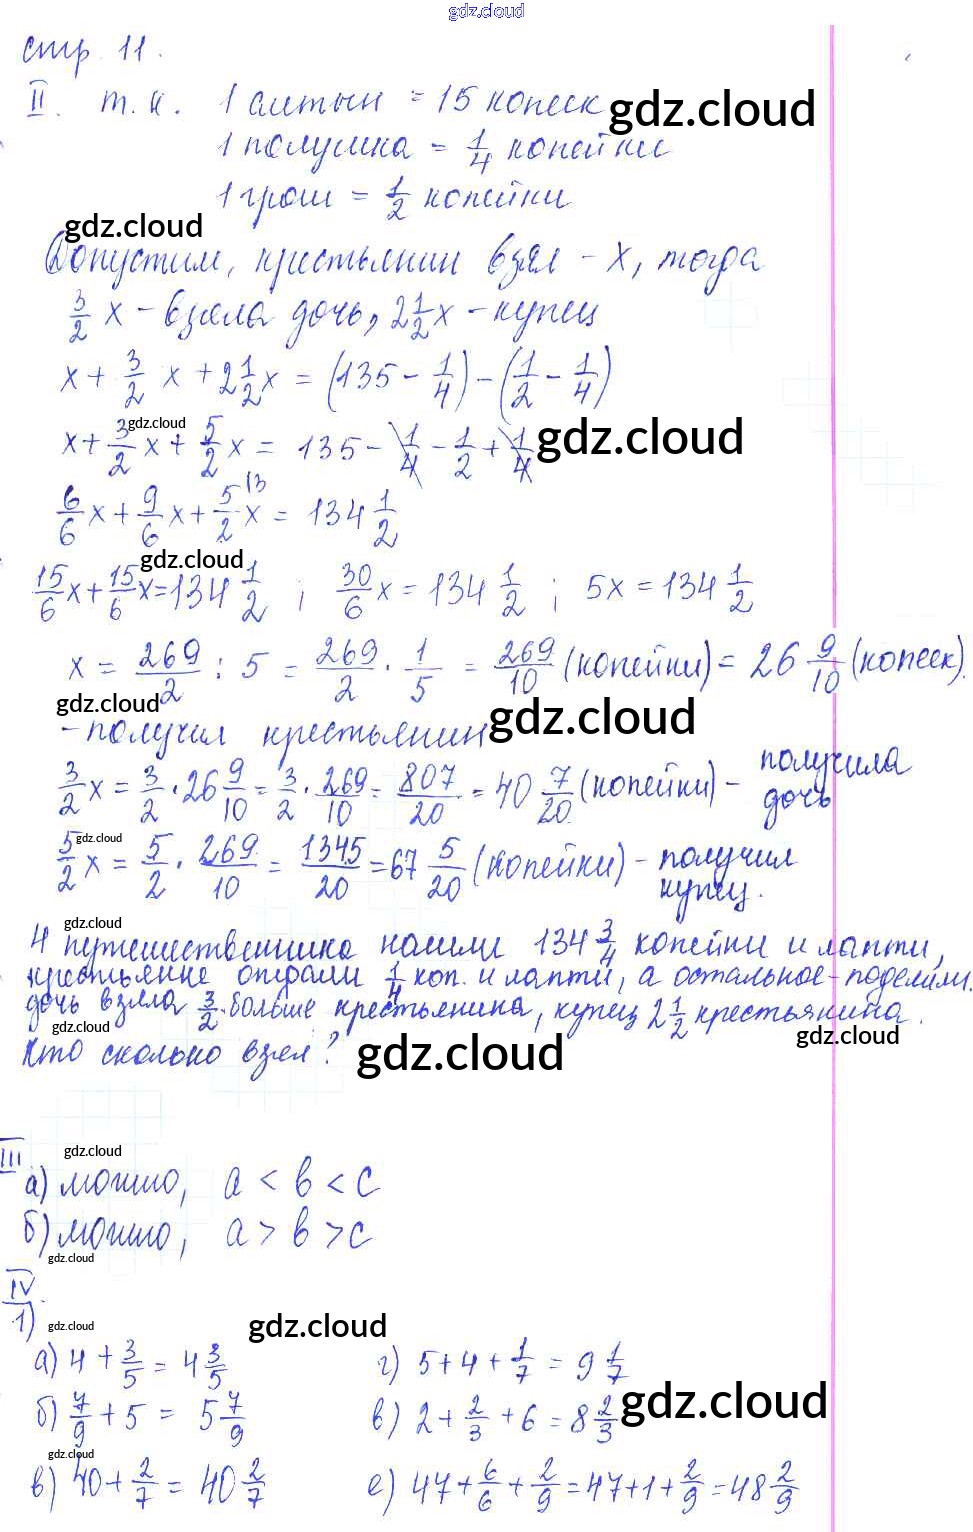 gdz.cloud
стр. 11.
II. т.к. 1 алтын = 15 копеек gdz.cloud
1 полушка = 1/4 копейки
1 грош = 1/2 копейки
gdz.cloud
Допустим, крестьянин взял - x, тогда
3/2 x - взяла дочь, 2 1/2 x - купец
x + 3/2 x + 2 1/2 x = (135 - 1/4) - (1/2 - 1/4)
gdz.cloud
x + 3/2 x + 5/2 x = 135 - 1/4 - 1/2 + 1/4 gdz.cloud
6/6 x + 9/6 x + 5/2 (3 x = 134 1/2
gdz.cloud
15/6 x + 15/6 x = 134 1/2 ; 30/6 x = 134 1/2 ; 5x = 134 1/2
x = 269/2 : 5 = 269/2 · 1/5 = 269/10 (копейки) = 26 9/10 (копеек).
gdz.cloud
- получил крестьянин gdz.cloud
3/2 x = 3/2 · 26 9/10 = 3/2 · 269/10 = 807/20 = 40 7/20 (копейки) - получила дочь
gdz.cloud
5/2 x = 5/2 · 269/10 = 1345/20 = 67 5/20 (копейки) - получил купец.
gdz.cloud
4 путешественника нашли 134 3/4 копейки и лапти,
крестьяне отдали 1/4 коп. и лапти, а остальное - поделили.
дочь взяла 3/2 больше крестьянина, купец 2 1/2 крестьянина.
gdz.cloud gdz.cloud
Кто сколько взял? gdz.cloud
III gdz.cloud
а) можно, a < b < c
б) можно, a > b > c
gdz.cloud
IV
1) gdz.cloud gdz.cloud
а) 4 + 3/5 = 4 3/5 г) 5 + 4 + 1/7 = 9 1/7
б) 7/9 + 5 = 5 7/9 в) 2 + 2/3 + 6 = 8 2/3 gdz.cloud
gdz.cloud
в) 40 + 2/7 = 40 2/7 е) 47 + 6/6 + 2/9 = 47 + 1 + 2/9 = 48 2/9